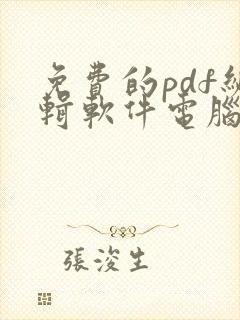 免費的pdf編
輯軟件電腦
張浚生